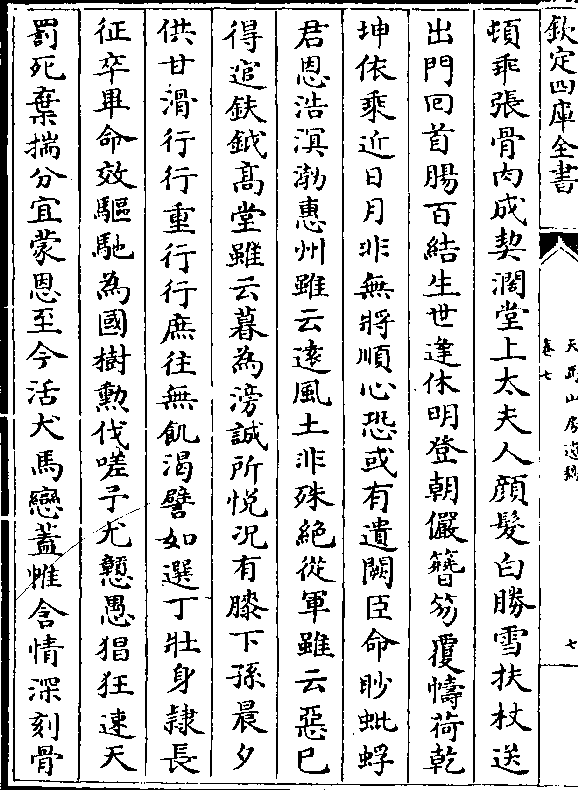 欽定四庫全書
天馬山房遺稿
卷七
七
頓乖張骨肉成契濶堂上太夫人顔髮白勝雪扶杖送
出門回首腸百結生世逢休明登朝儼簪笏覆幬荷乾
坤依乘近日月非無將順心恐或有遺闕臣命眇蚍蜉
君恩浩溟渤惠州雖云遠風土非殊絶從軍雖云惡已
得逭鈇鉞髙堂雖云暮為滂誠所悦况有膝下孫晨夕
供甘滑行行重行行庶往無飢渴譬如選丁壯身隸長
征卒畢命效驅馳為國樹勲伐嗟予尤戇愚猖狂速天
罰死棄揣分宜蒙恩至今活犬馬戀蓋帷含情深刻骨